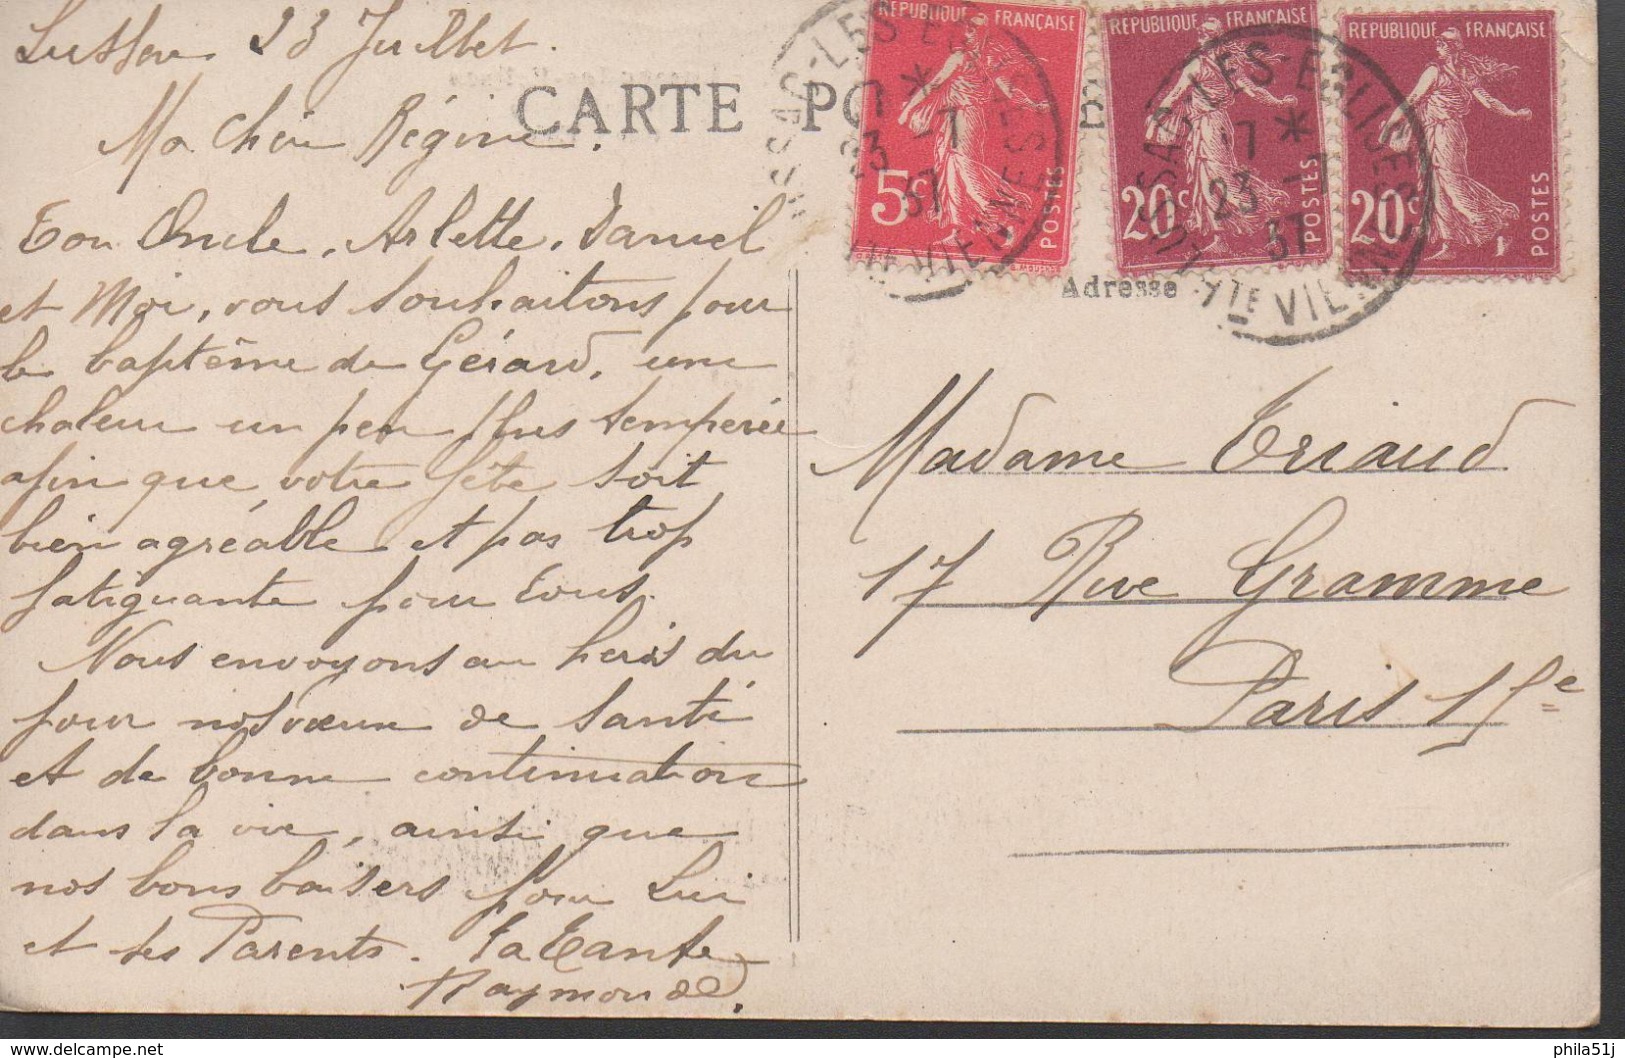 Lussac 23 Juillet.
Ma chère Régine.
Ton Oncle, Arlette, Daniel
et Moi, vous souhaitons pour
le baptême de Gérard, une
chaleur un peu plus tempérée
afin que votre fête soit
bien agréable et pas trop
fatiguante pour tous.
Nous envoyons au heros du
jour nos vœux de Santé
et de bonne continuation
dans la vie, ainsi que
nos bons baisers pour Lui
et ses Parents. Ta Tante
Raymonde.
CARTE PO
REPUBLIQUE FRANÇAISE
5c
POSTES
REPUBLIQUE FRANÇAISE
20c
POSTES
REPUBLIQUE FRANÇAISE
20c
POSTES
LUSSAC-LES-EGLISES
17 *
23 -7
37
HTE VIENNE
LUSSAC-LES-EGLISES
17 *
23 -7
37
HTE VIENNE
Adresse
Madame Triaud
17 Rue Gramme
Paris 15e
delcampe.net
phila51j